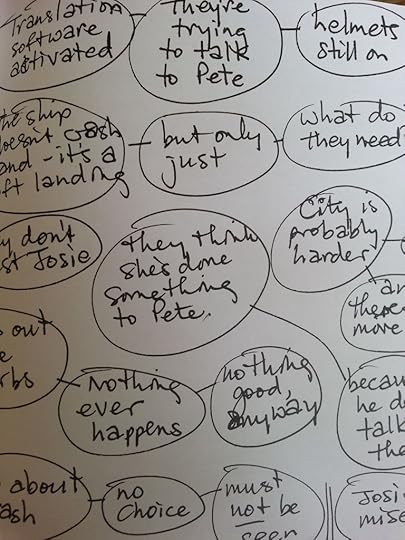 Translation
software
activated
They're
trying
to talk
to Pete
helmets
still on
the ship
doesn't crash
land - it's a
soft landing
but only
just
what do
they need?
don't
Josie
they think
she's done
something
to Pete.
City is
probably
harder
more
out
Nothing
ever
happens
nothing
good,
anyway
he
talk
about
no
choice
must
not be
seen